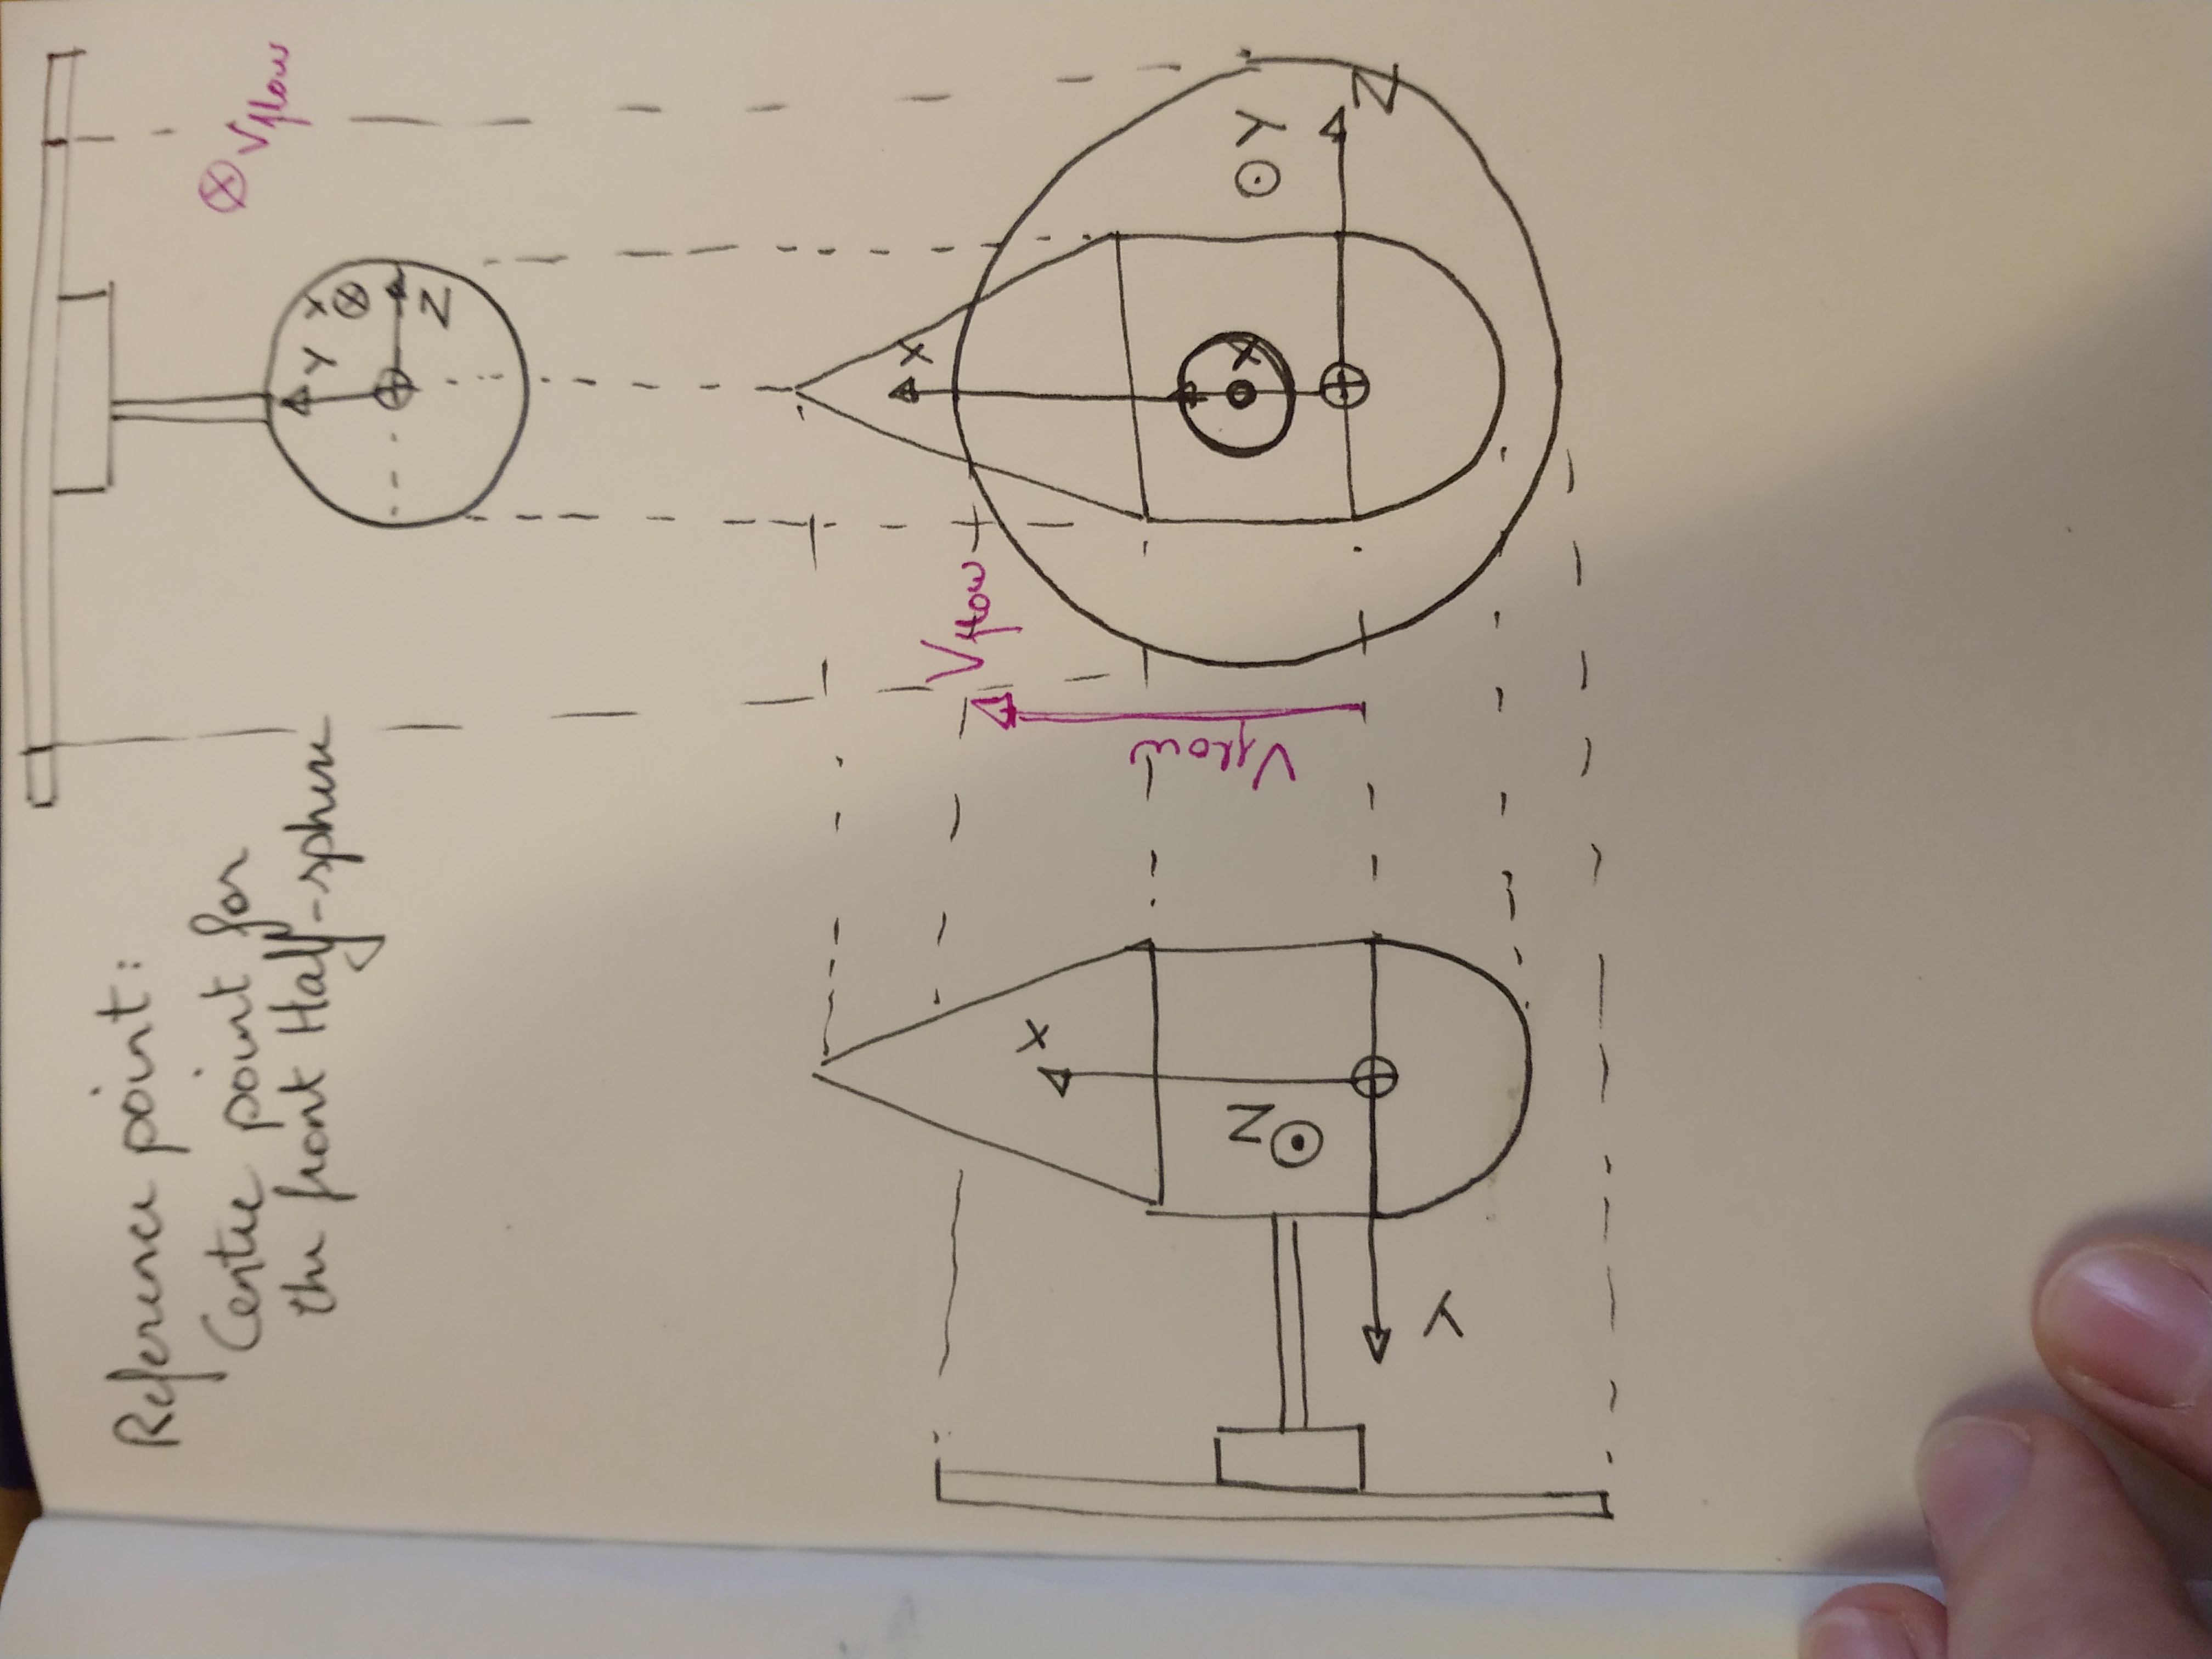 Reference point:
Centre point for
the front Half-sphere
Vflow
Y
X
Z
X
Vflow
X
Vflow
Z
X
Y
Y
Z